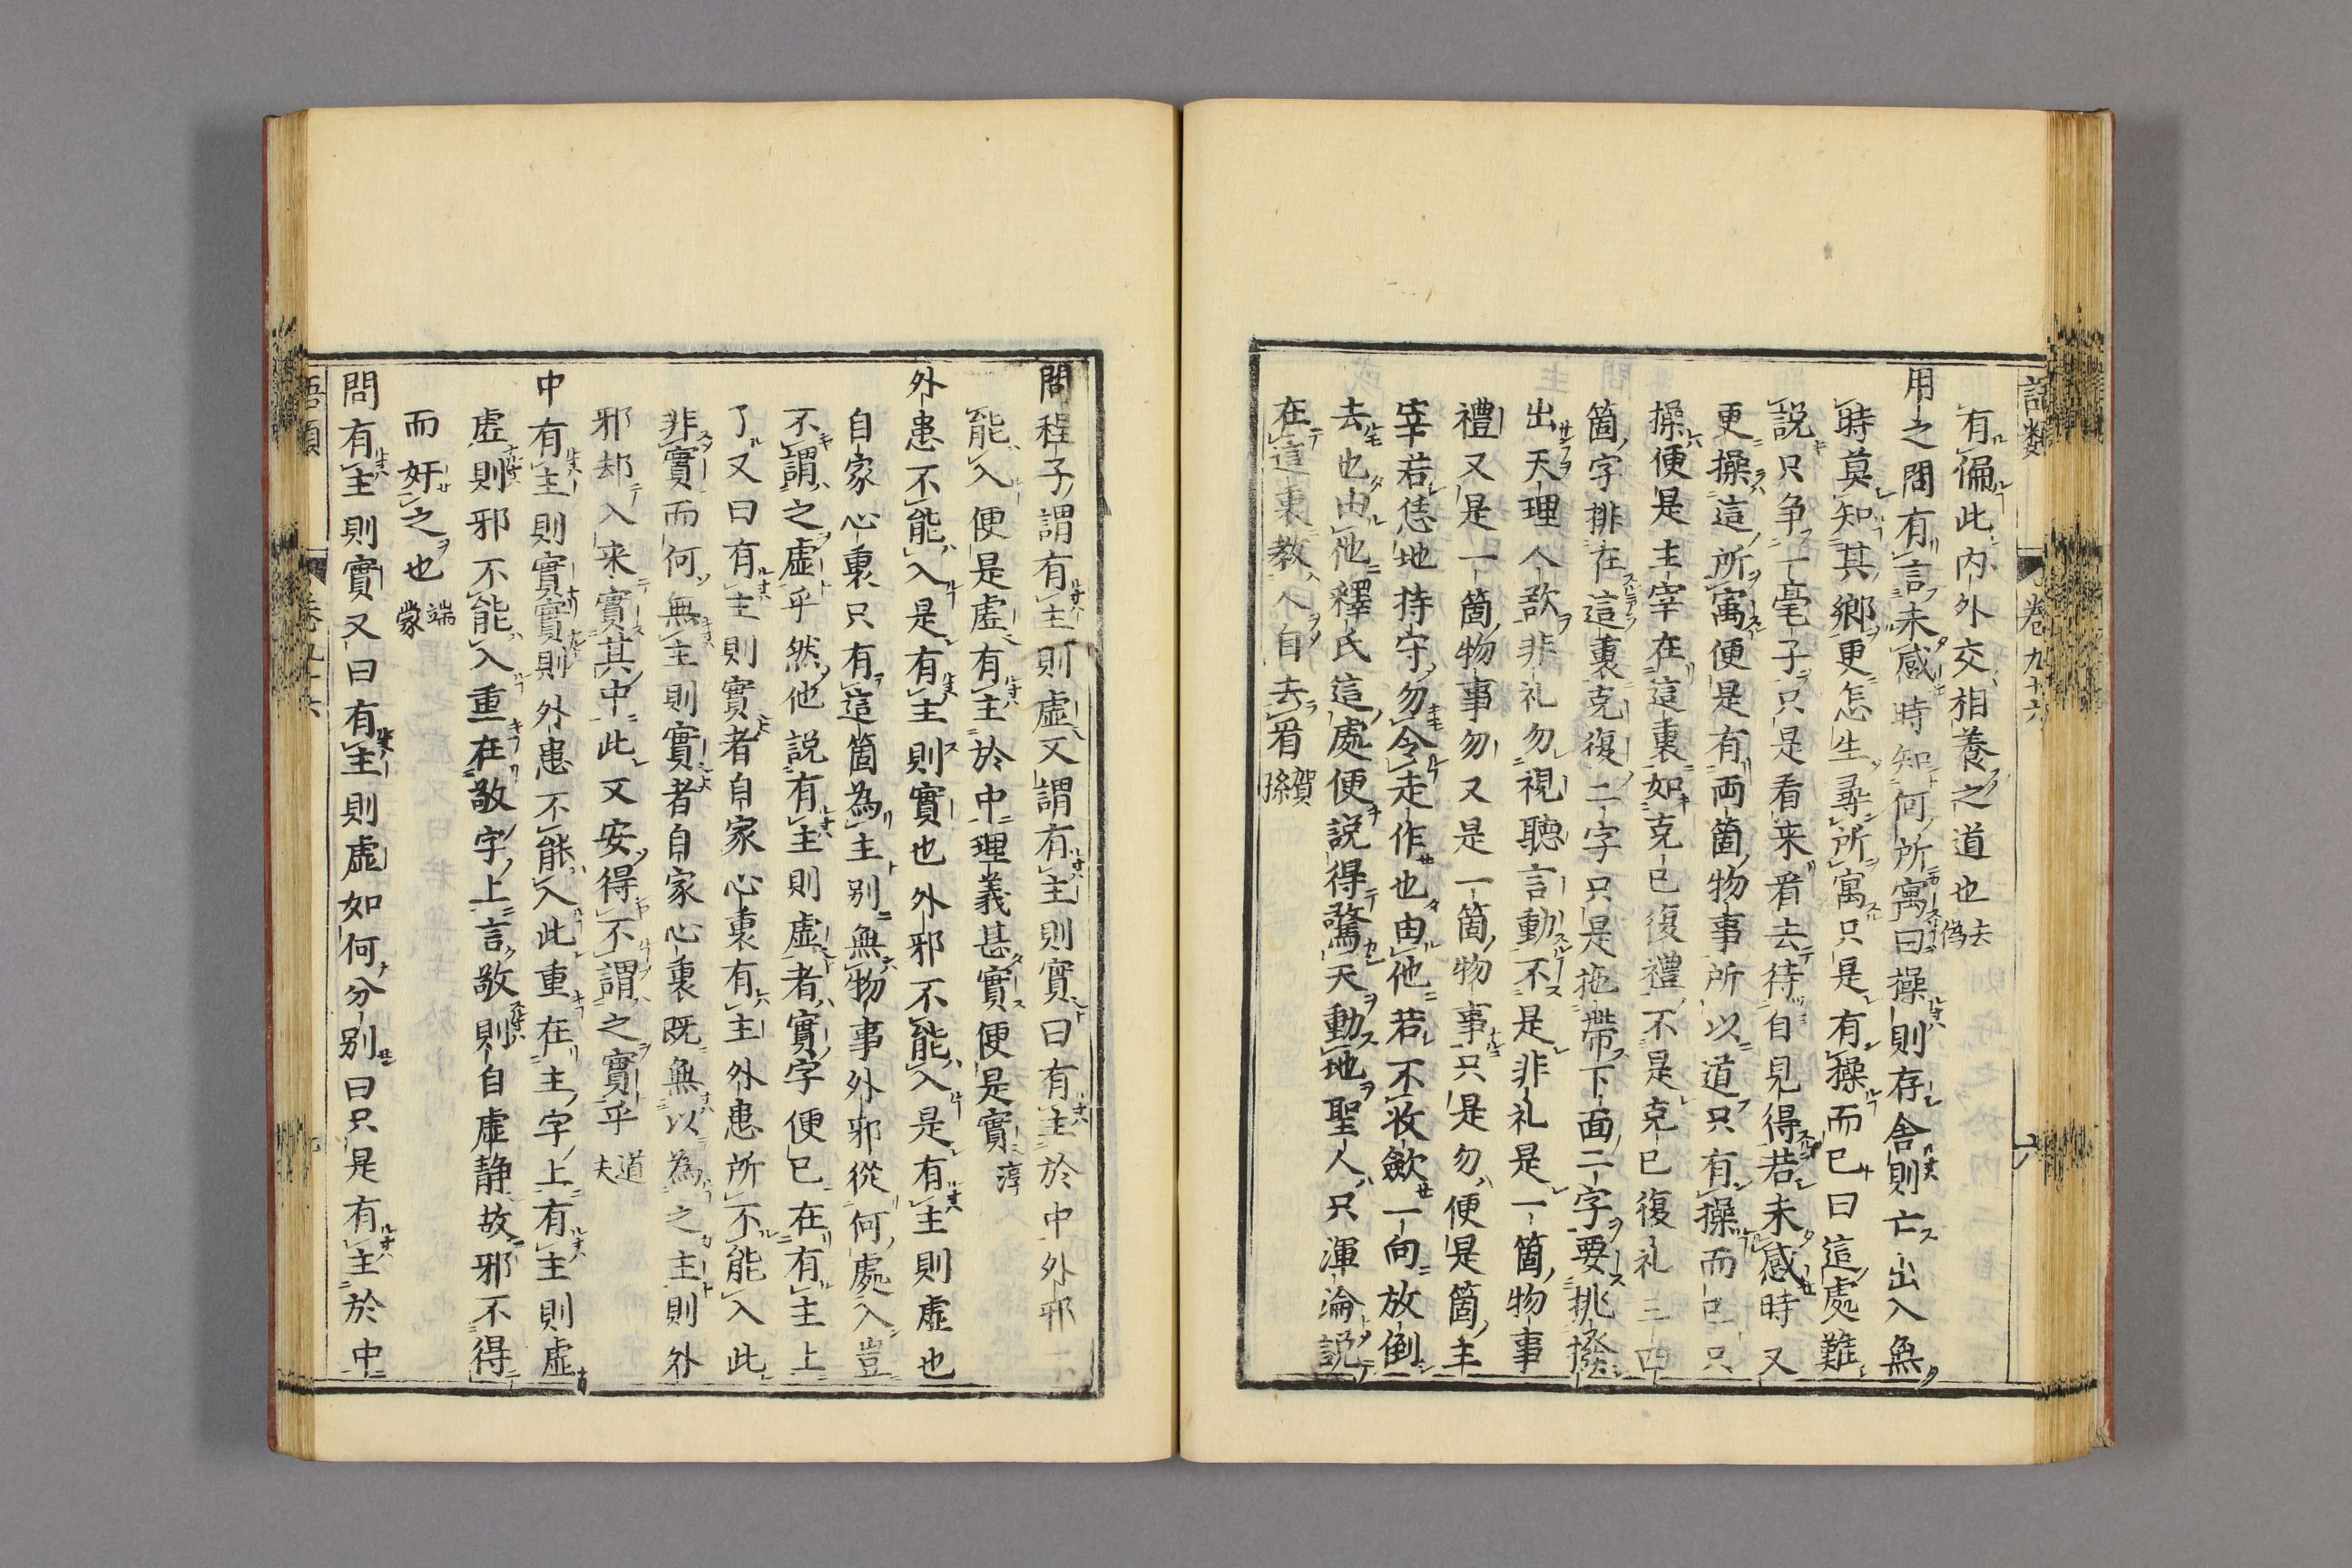 語類 卷九十六 六
有偏此内外交相養之道也 去偽
用之問有言未感時知何所寓曰操則存舍則亡出入無
時莫知其鄉更怎生尋所寓只是有操而已曰這處難
説只争一毫子只是看来看去待自見得若未感時又
更操這所寓便是有両箇物事所以道只有操而已只
操便是主宰在這裏如克已復禮不是克已復礼三四
箇字排在這裏克復二字只是拖帶下面二字要挑撥
出天理人欲非礼勿視聽言動不是非礼是一箇物事
禮又是一箇物事勿又是一箇物事只是勿便是箇主
宰若恁地持守勿令走作也由他若不收歛一向放倒
去也由他釋氏這處便説得驚天動地聖人只渾淪説
在這裏教人自去看 賀孫
問程子謂有主則虚又謂有主則實曰有主於中外邪不
能入便是虚有主於中理義甚實便是實 淳
外患不能入是有主則實也外邪不能入是有主則虚也
自家心裏只有這箇為主别無物事外邪從何處入豈
不謂之虚乎然他説有主則虚者實字便已在有主上
了又曰有主則實者自家心裏有主外患所不能入此
非實而何無主則實者自家心裏既無以為之主則外
邪却入来實其中此又安得不謂之實乎 道夫
中有主則實實則外患不能入此重在主字上有主則虚
虚則邪不能入重在敬字上言敬則自虚静故邪不得
而奸之也 端蒙
問有主則實又曰有主則虚如何分别曰只是有主於中
語類 卷九十六